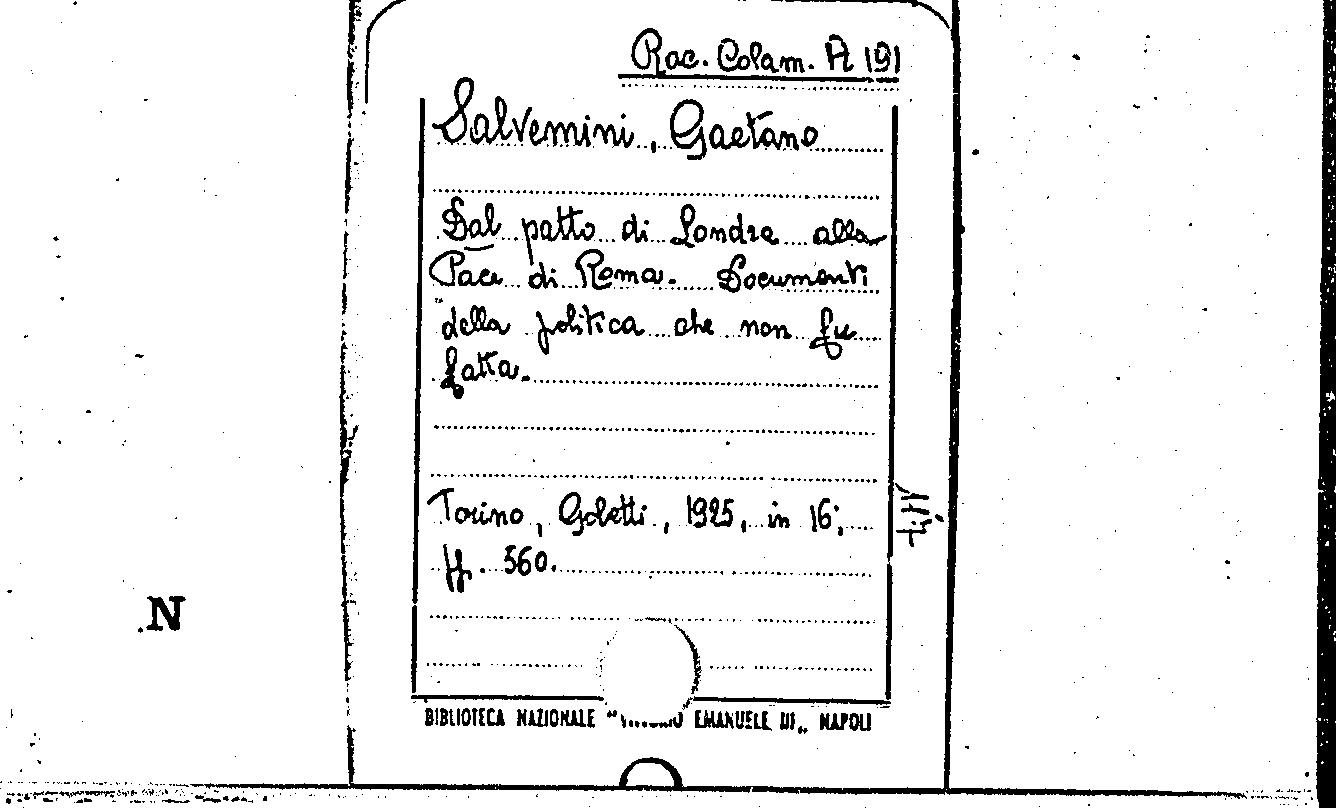 Rac. Colam. A 191
Salvemini, Gaetano
Dal patto di Londra alla
Pace di Roma. Documenti
della politica che non fu
fatta.
Torino, Gobetti, 1925, in 16;
pp. 560.
N
BIBLIOTECA NAZIONALE "VITTORIO EMANUELE III„ NAPOLI